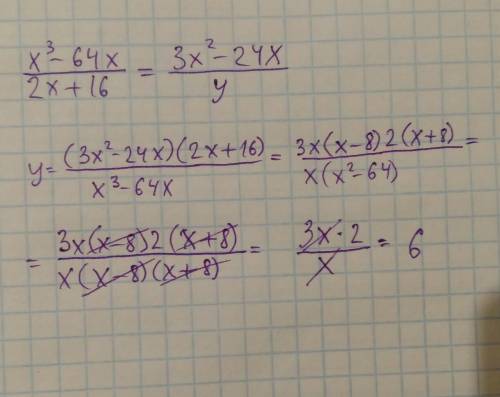 (x³-64x)/(2x+16) = (3x²-24x)/y
y = ((3x²-24x)(2x+16))/(x³-64x) = (3x(x-8)2(x+8))/(x(x²-64)) =
= (3x(x-8)2(x+8))/(x(x-8)(x+8)) = (3x·2)/x = 6